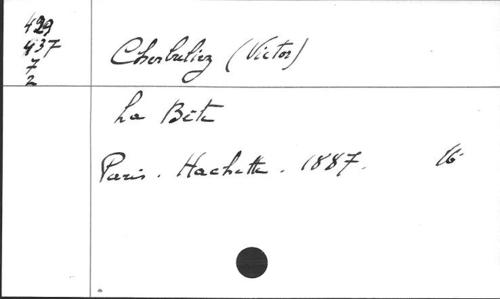 429
437
7
2
Cherbuliez (Victor)
La Bête
Paris. Hachette. 1887. 16°